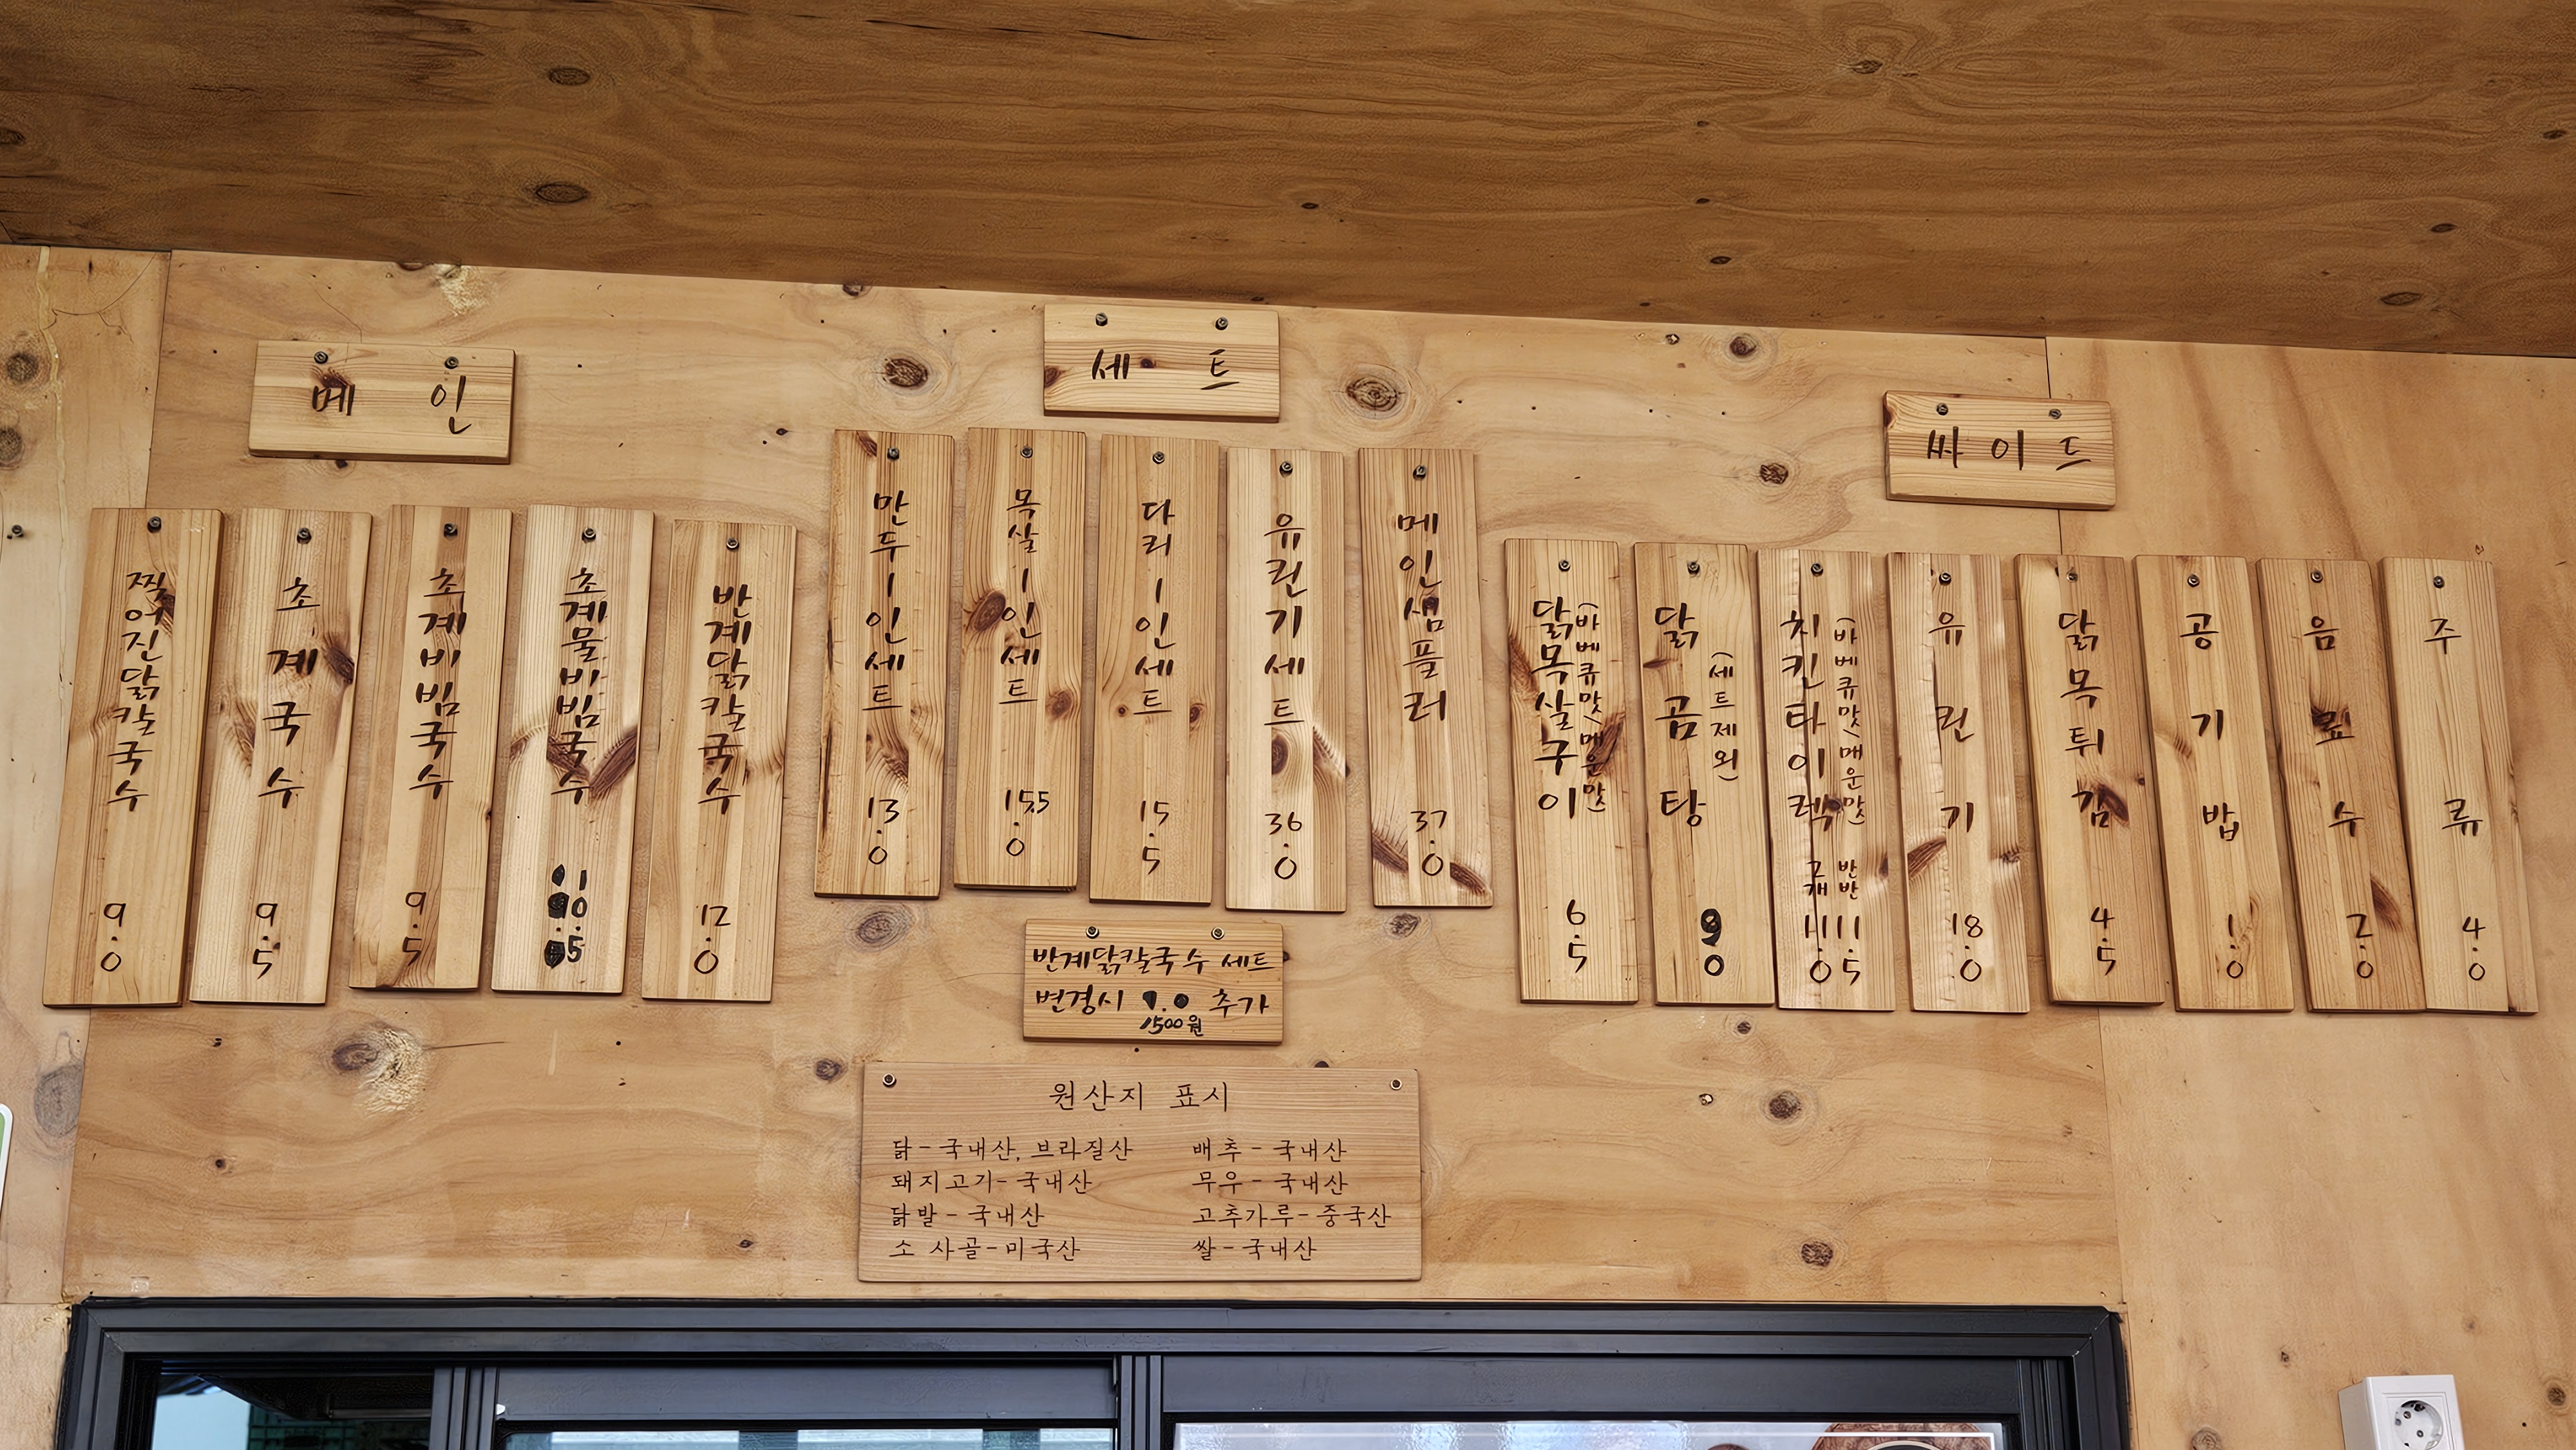 메인
찢어진닭칼국수 9.0
초계국수 9.5
초계비빔국수 9.5
초계물비빔국수
반계닭칼국수 12.0
세트
만두1인세트 13.0
목살1인세트
다리1인세트 15.5
유린기세트 36.0
메인샘플러 37.0
반계닭칼국수 세트
변경시 1.0 추가
1500원
싸이드
닭목살구이 (바베큐맛/매운맛) 6.5
닭곰탕 (세트제외) 9.0
치킨타이렉 (바베큐맛/매운맛)
2개 11.0
반반 11.5
유린기 18.0
닭목튀김 4.5
공기밥 1.0
음료수 2.0
주류 4.0
원산지 표시
닭-국내산, 브라질산
돼지고기-국내산
닭발-국내산
소 사골-미국산
배추-국내산
무우-국내산
고추가루-중국산
쌀-국내산